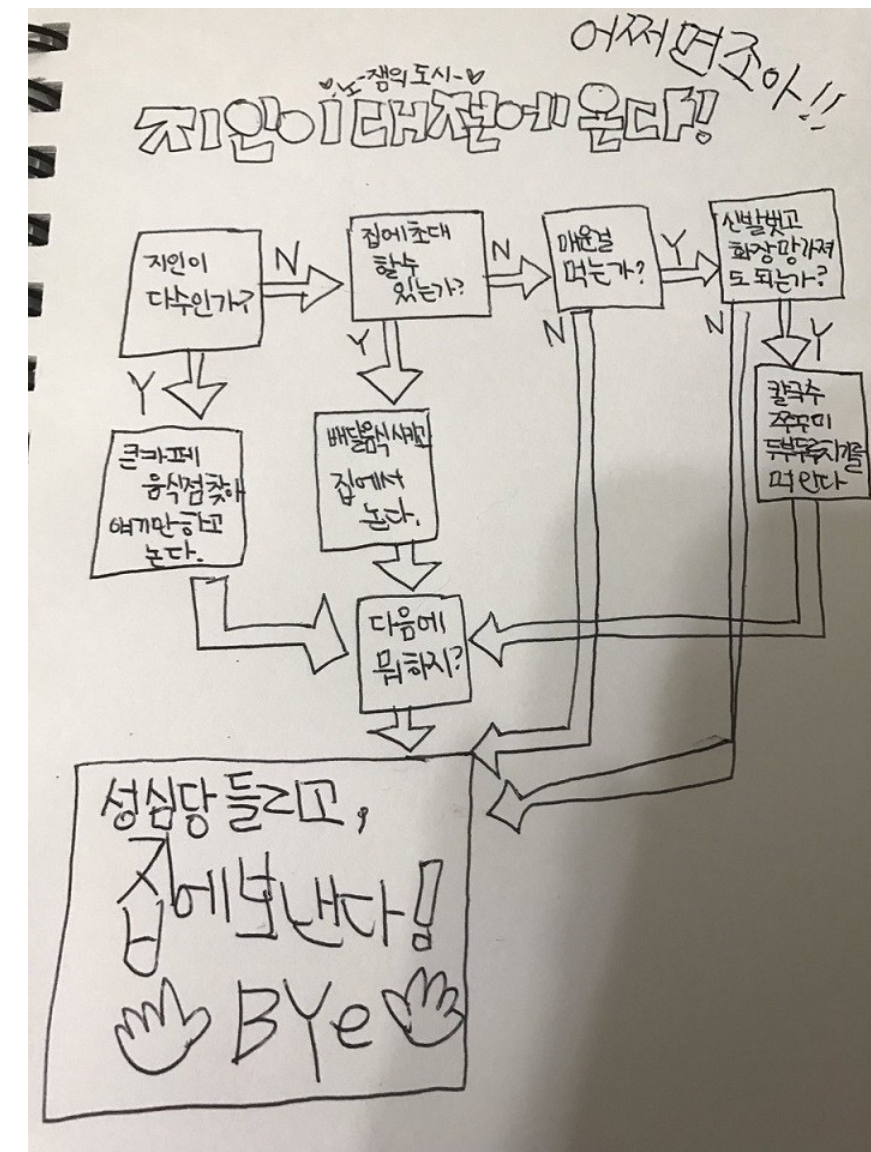 어쩌면조아!!
노-잼의 도시-
지인이 대전에 온다!
지인이
다수인가?
N
집에초대
할수
있는가?
N
매운걸
먹는가?
Y
신발벗고
화장망가져
도 되는가?
Y
Y
N
N
Y
큰카페
음식점찾아
얘기만하고
논다.
배달음식시키고
집에서
논다.
칼국수
쭈꾸미
두부두루치기를
먹인다
다음에
뭐하지?
성심당 들리고,
집에보낸다!
BYe